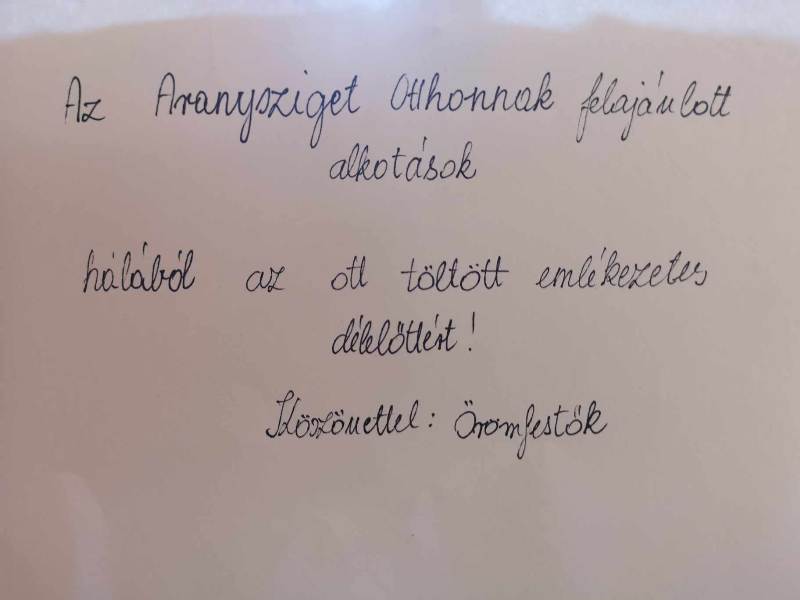 Az Aranysziget Otthonnak felajánlott
alkotások
hálából az ott töltött emlékezetes
délelőttért!
Köszönettel: Örömfestők